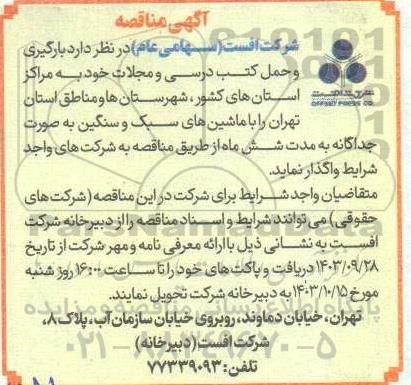 آگهی مناقصه
شرکت افست (سهامی عام) در نظر دارد بارگیری
و حمل کتب درسی و مجلات خود به مراکز
استان های کشور، شهرستان ها و مناطق استان
تهران را با ماشین های سبک و سنگین به صورت
جداگانه به مدت شش ماه از طریق مناقصه به شرکت های واجد
شرایط واگذار نماید.
متقاضیان واجد شرایط برای شرکت در این مناقصه (شرکت های
حقوقی) می توانند شرایط و اسناد مناقصه را از دبیرخانه شرکت
افست به نشانی ذیل با ارائه معرفی نامه و مهر شرکت از تاریخ
۱۴۰۳/۰۹/۲۸ دریافت و پاکت های خود را تا ساعت ۱۶:۰۰ روز شنبه
مورخ ۱۴۰۳/۱۰/۱۵ به دبیرخانه شرکت تحویل نمایند.
تهران، خیابان دماوند، روبروی خیابان سازمان آب، پلاک ۸،
شرکت افست (دبیرخانه)
تلفن: ۷۷۳۳۹۰۹۳
شرکت افست
OFFSET PRESS CO.